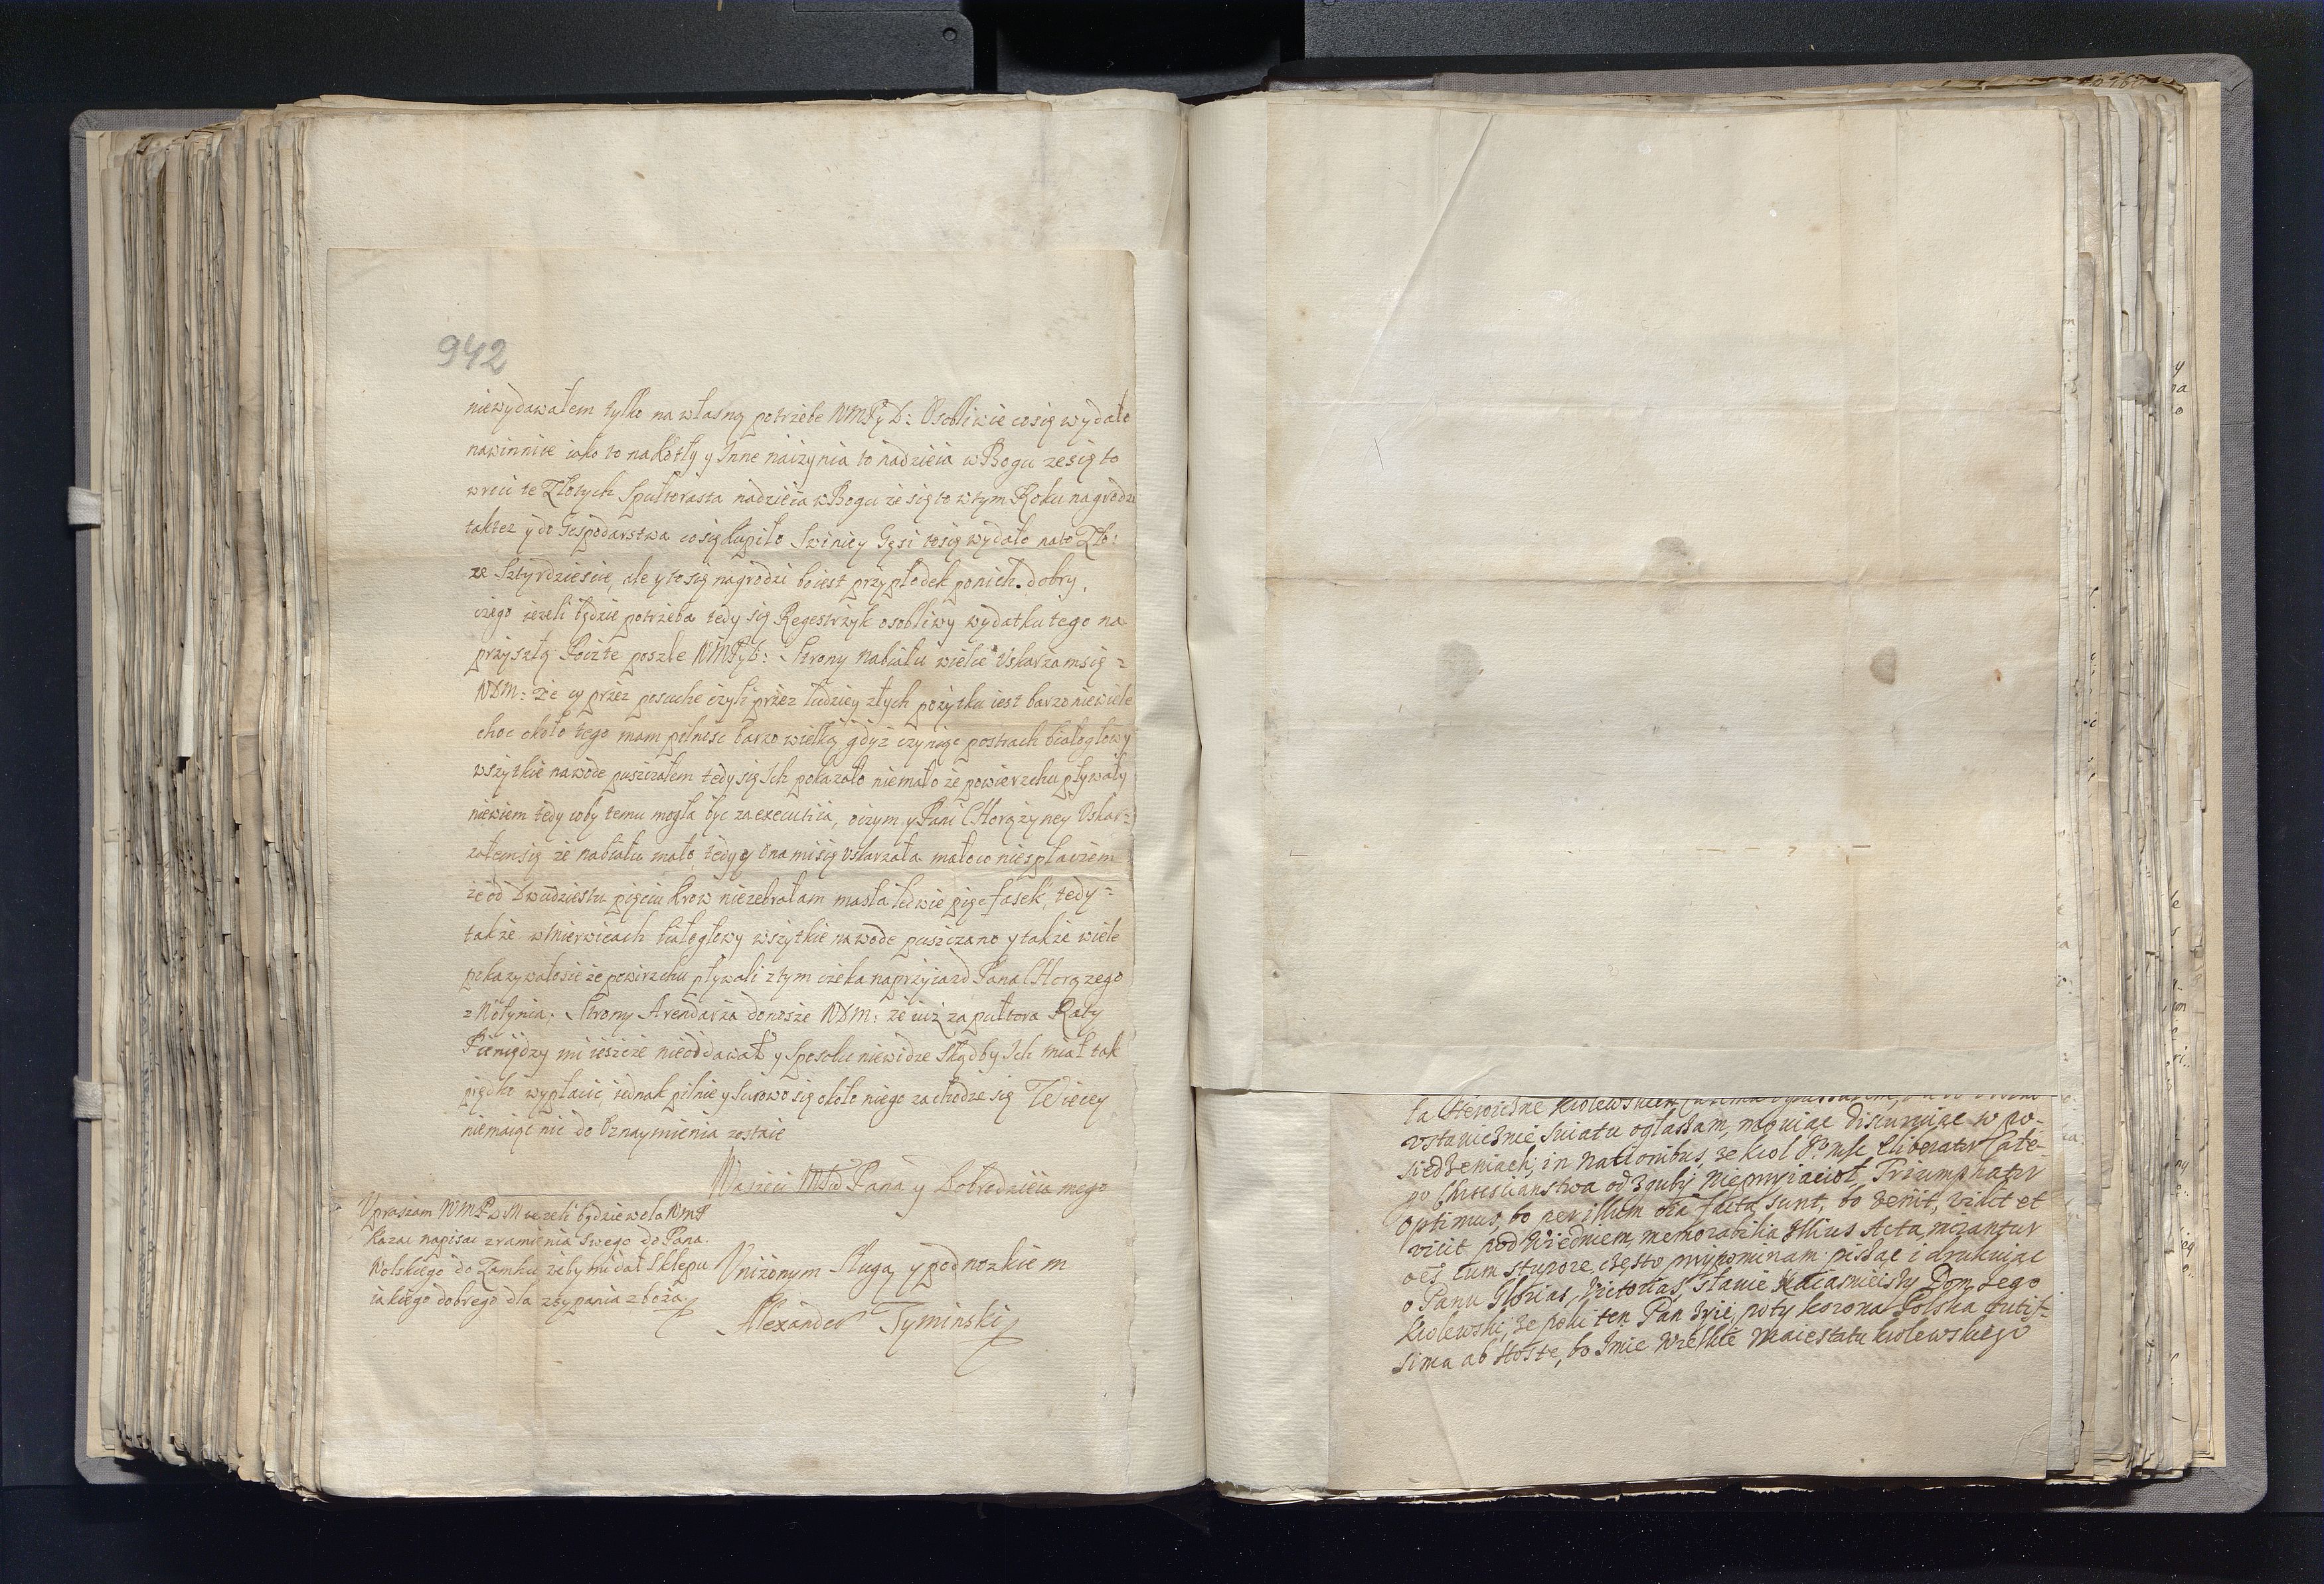 942
niewydawałem tylko na własną potrzebe WMPyD: Osobliwie cosię wydało
nawinnice iako to nakotły y Inne naczynia to nadzieia w Bogu zesię to
wroci te Złotych Spułtorasta nadzieia w Bogu że się to wtym Roku nagrodzi
taktez y do Gospodarstwa cosię kupiło Swiniey Gęsi tosię wydało nato Zło:
ze Sztyrdziescie, ale y tosię nagrodzi boiest przypłodek ponich dobry,
czego iezeli będzie potrzeba tedy się Regestrzyk osobliwy wydatku tego na
przyszłą Poczte poszle WMPyD: Strony Nabiału wielce Uskarzamsię =
WDM: że cy przez posuche czyli przez ludziey złych pożytku iest barzo niewiele
choc około tego mam pilnisc barzo wielką gdyż czyniąc postrach białogłowy
wszytkie nawode pusczałem tedy się Ich pokazało niemało że powierzchu pływały
niewiem tedy coby temu mogła byc za executia, oczym y Pani Chorążyney Uskar=
załemsię że nabiału mało, tedy y ona misię uskarzała małoco niespłaczem
że od Dwudziestu pięciu krow niezebrałam masła ledwie pięc fasek, tedy =
takze w Mierwicach białogłowy wszytkie nawode pusczano y takze wiele
pokazywałosie że powirzchu pływali ztym czeka naprzyiazd Pana Chorązego
z Wołynia; Strony Arendarza donosze WDM: że iuż za pułtora Raty
Pieniędzy mi ieszcze nieoddawał y sposobu niewidze skądby Ich miał tak
prędko wypłacic, iednak pilnie y surowo się około niego zachodze się Wiecey
niemaiąc nic do Oznaymienia zostaie
Waszeci MSW Pana y Dobrodzieia mego
Upraszam WMP iezeli będzie wola WMP
kazac napisac zramienia swego do Pana
Wolskiego do Zamku żeby mi dał Sklepu
iakiego dobrego dla zsypania zboża
Uniżonym Sługą y podnozkiem
Alexander Tyminski
vstawicznie swiatu ogłaszam, mowiąc Discuruiąc w po-
siedzeniach, in Nationibus, ze krol Liberator Całe-
go Chrescianstwa od zguby Nieprzyiacioł, Triumphator
Optimus, bo per illum facta sunt, bo venit, vidit et
vicit pod Wiedniem, memorabilia illius Acta mirantur
cum stupore, często przypominam pisząc i drukuiąc
o Panu Glorias, Victorias, Sławie Naiasnieiszy Dom Jego
krolewski, ze poki ten Pan zyie, poty korona Polska tutis-
sima ab Hoste, bo Imie Wielkie Maiestatu krolewskiego